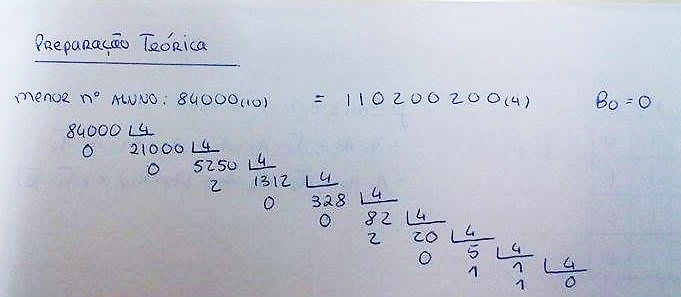 Preparação Teórica
menor nº aluno: 84000(10) = 110200200(4) B0 = 0
84000 4
0 21000 4
0 5250 4
2 1312 4
0 328 4
0 82 4
2 20 4
0 5 4
1 1 4
1 0